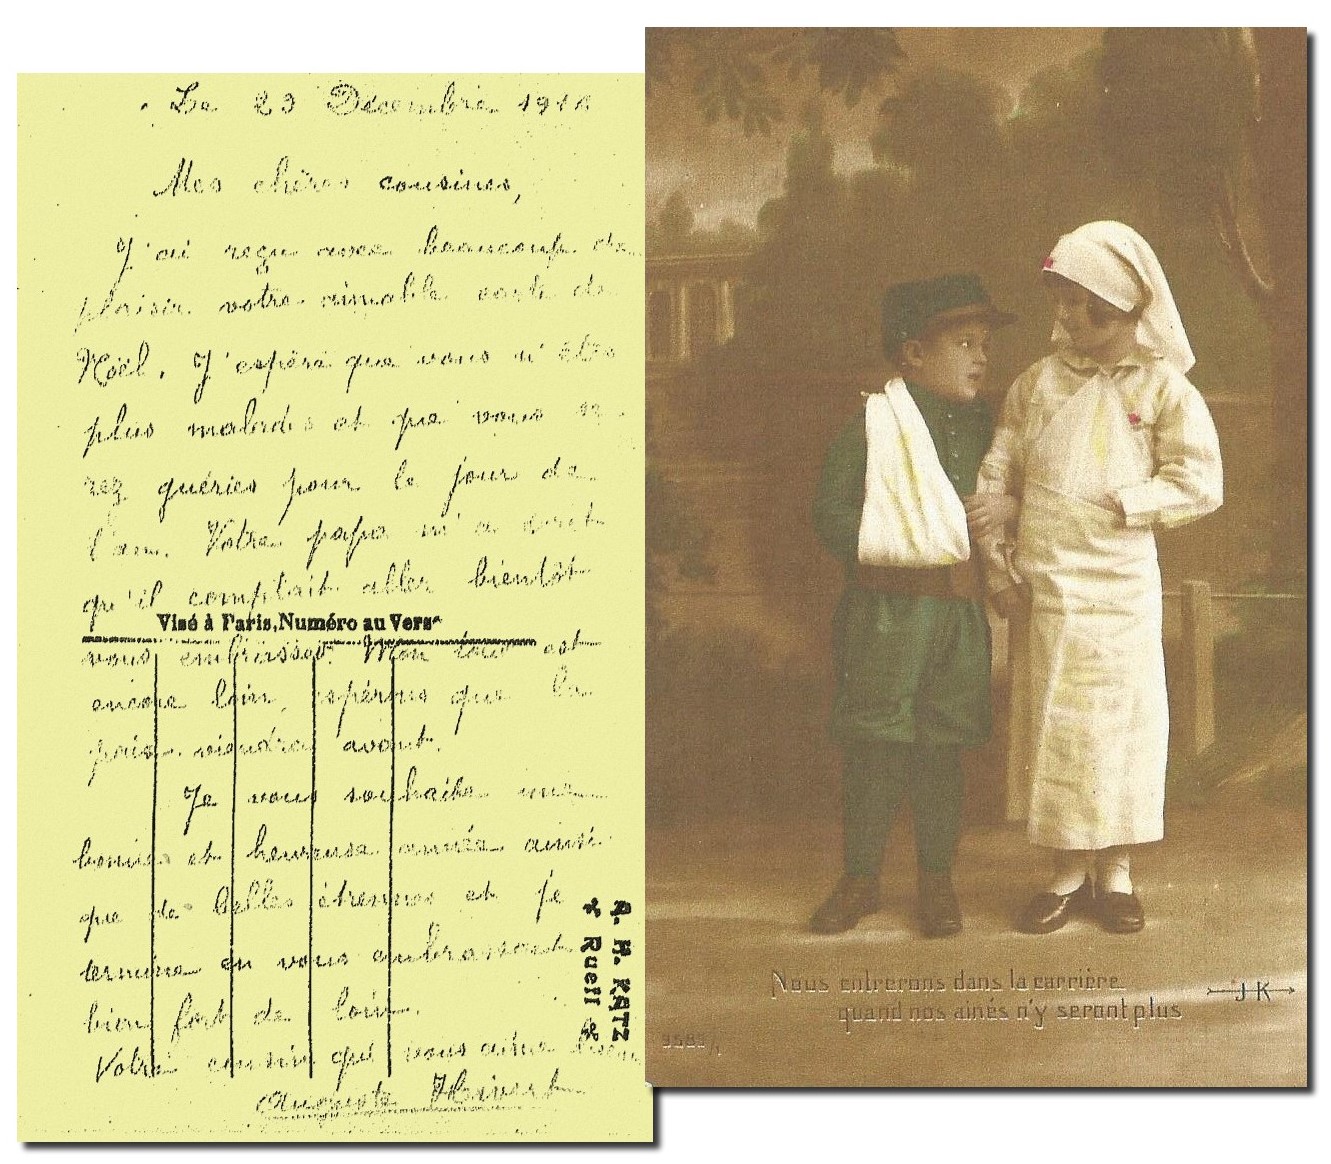 Le 23 Décembre 1914
Mes chères cousines,
J'ai reçu avec beaucoup de
plaisir votre aimable carte de
Noël. J'espère que vous n'êtes
plus malades et que vous se
rez guéries pour le jour de
l'an. Votre papa m'a écrit
qu'il comptait aller bientôt
Visé à Paris, Numéro au Verso
vous embrasser. Mon tour est
encore loin, espérons que la
paix viendra avant.
Je vous souhaite une
bonne et heureuse année ainsi
que de belles étrennes et je
termine en vous embrassant
bien fort de loin.
Votre cousin qui vous aime bien
Auguste
A. H. KATZ
Rueil
Nous entrerons dans la carrière
quand nos ainés n'y seront plus
JK